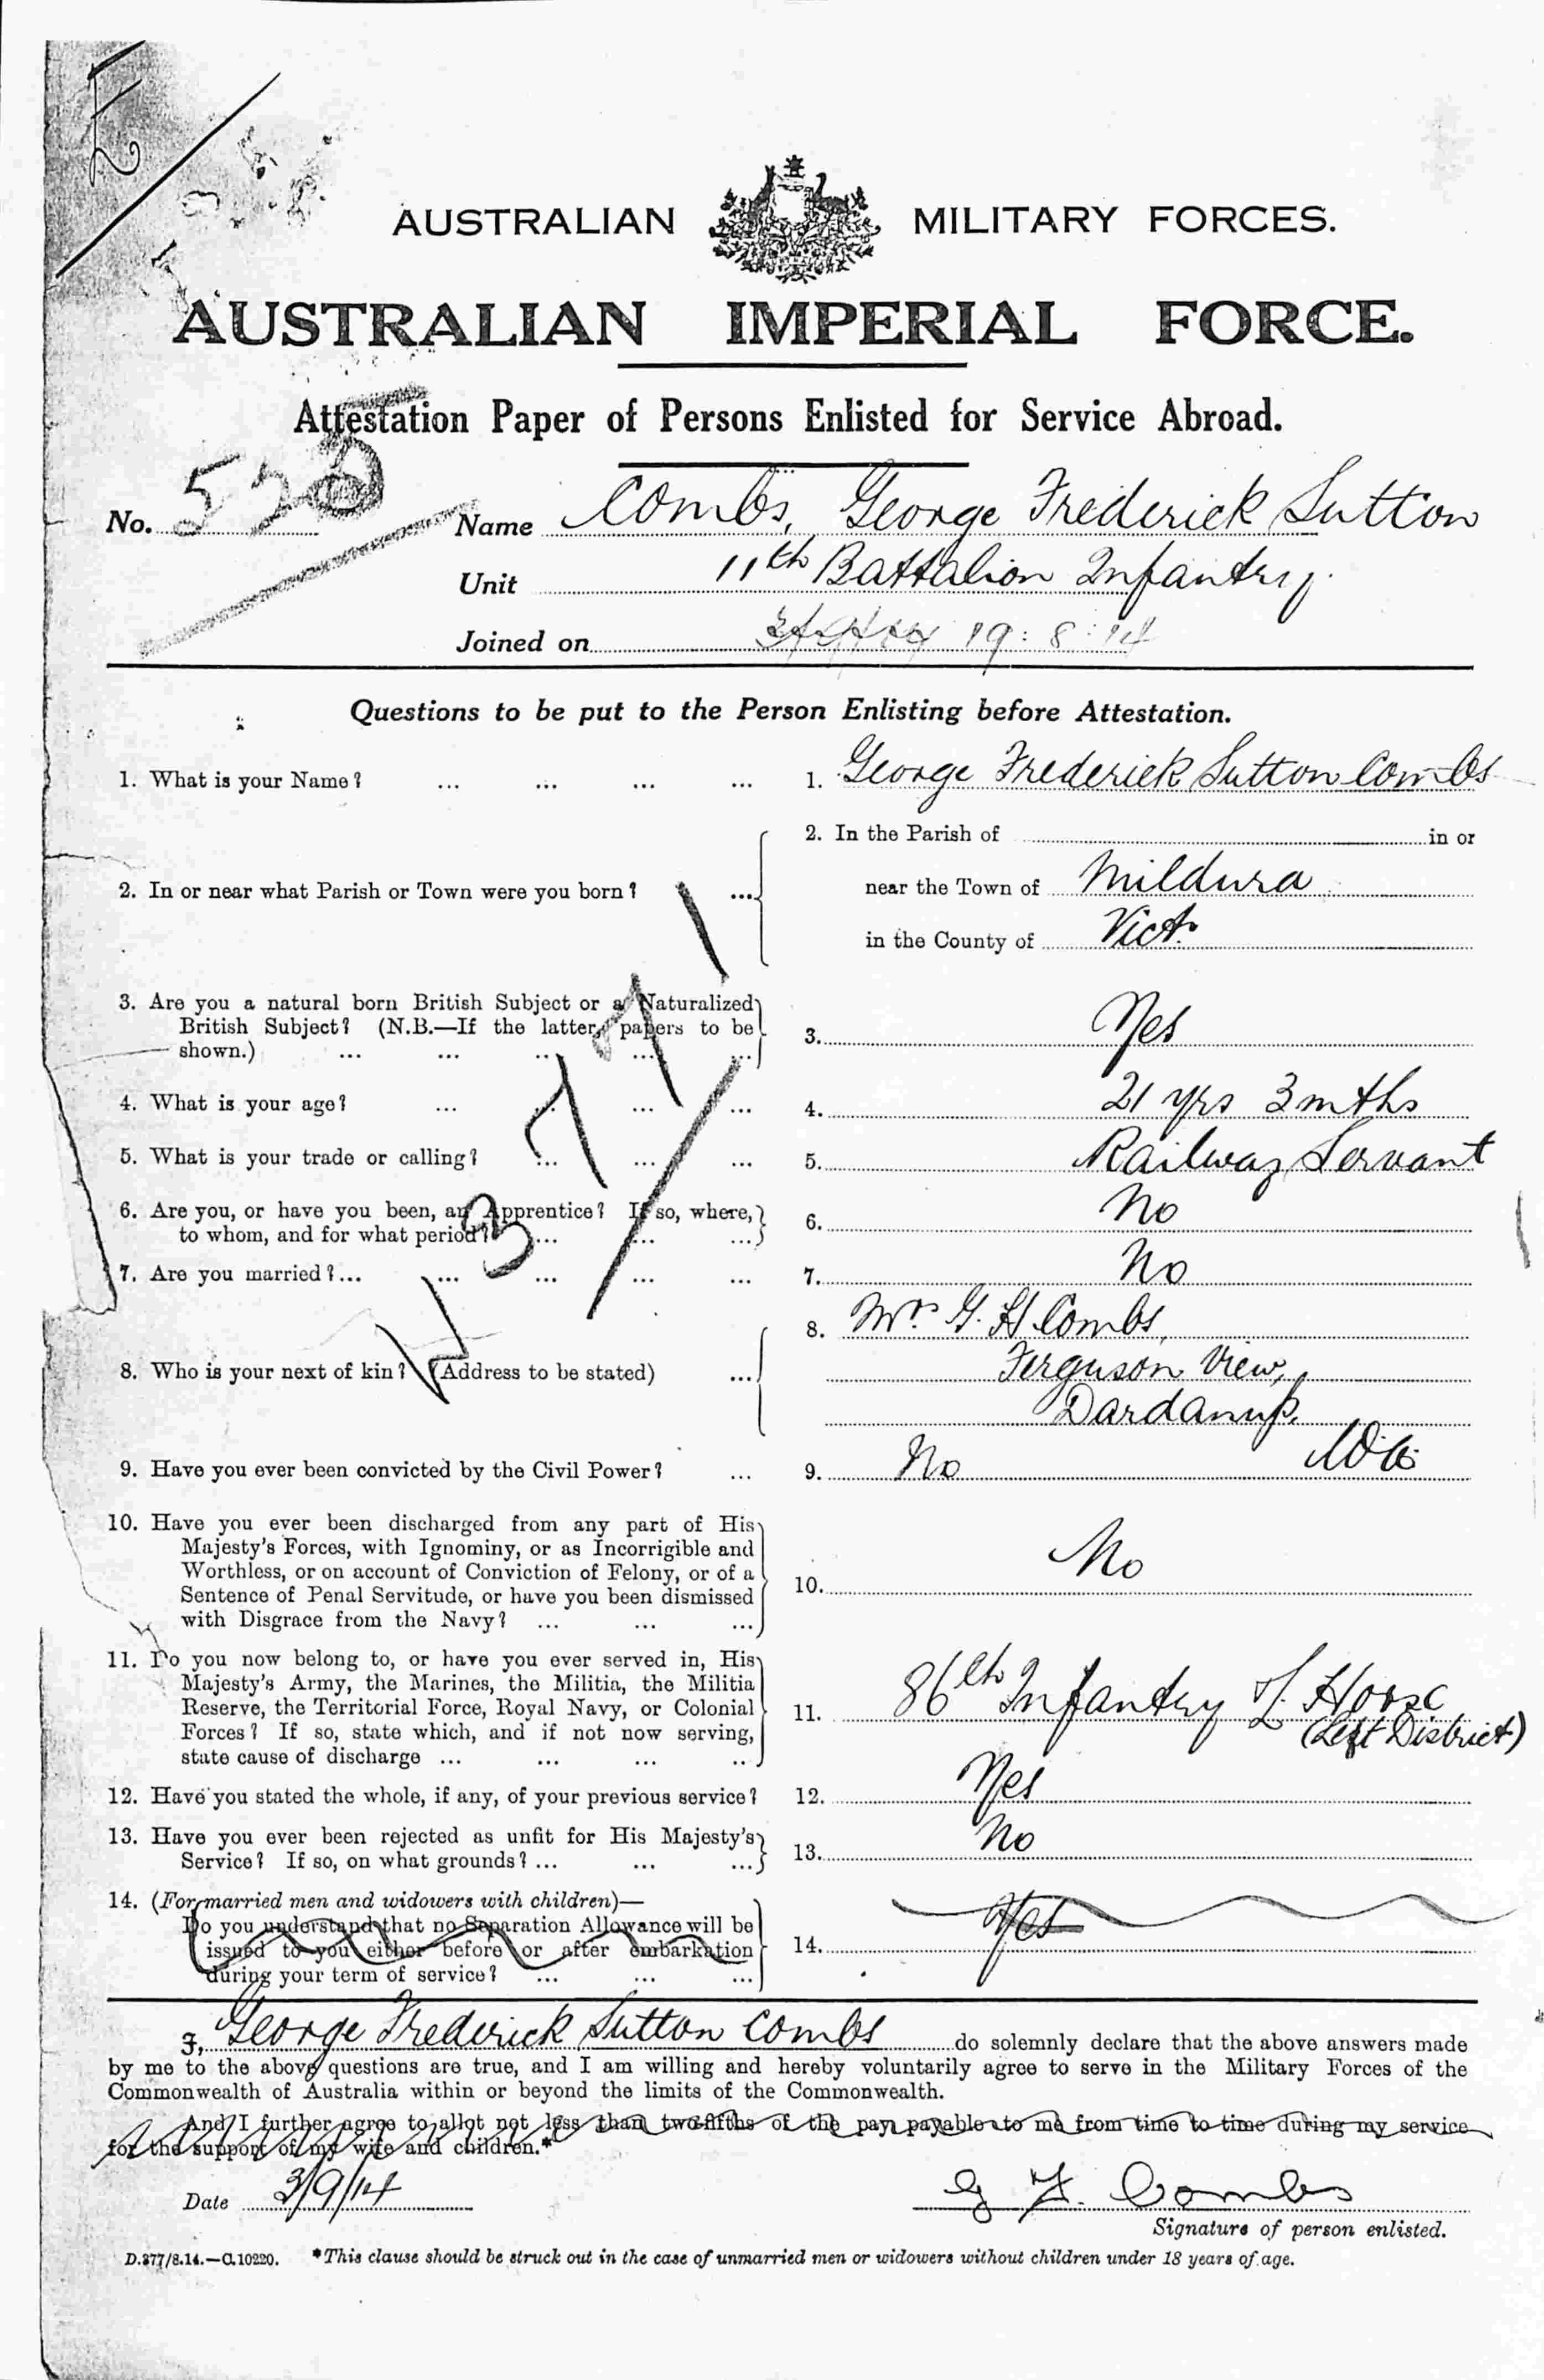 AUSTRALIAN MILITARY FORCES.
AUSTRALIAN IMPERIAL FORCE.
Attestation Paper of Persons Enlisted for Service Abroad.
No. Name Combs, George Frederick Sutton
Unit 11th Battalion Infantry.
Joined on 19:8:14
Questions to be put to the Person Enlisting before Attestation.
1. What is your Name? ... ... ... ... 1. George Frederick Sutton Combs
2. In or near what Parish or Town were you born? ... 2. In the Parish of in or
near the Town of Mildura
in the County of Vict.
3. Are you a natural born British Subject or a Naturalized
British Subject? (N.B.—If the latter, papers to be
shown.) ... ... ... ... ... 3. Yes
4. What is your age? ... ... ... ... 4. 21 yrs 3 mths
5. What is your trade or calling? ... ... ... 5. Railway Servant
6. Are you, or have you been, an Apprentice? If so, where,
to whom, and for what period? ... ... ... 6. No
7. Are you married?... ... ... ... ... 7. No
8. Who is your next of kin? (Address to be stated) ... 8. Mrs G. H Combs,
Ferguson View,
Dardanup,
9. Have you ever been convicted by the Civil Power? ... 9. No
10. Have you ever been discharged from any part of His
Majesty's Forces, with Ignominy, or as Incorrigible and
Worthless, or on account of Conviction of Felony, or of a
Sentence of Penal Servitude, or have you been dismissed
with Disgrace from the Navy? ... ... ... 10. No
11. Do you now belong to, or have you ever served in, His
Majesty's Army, the Marines, the Militia, the Militia
Reserve, the Territorial Force, Royal Navy, or Colonial
Forces? If so, state which, and if not now serving,
state cause of discharge ... ... ... ... 11. 86th Infantry L. Horse
(Left District)
12. Have you stated the whole, if any, of your previous service? 12. Yes
13. Have you ever been rejected as unfit for His Majesty's
Service? If so, on what grounds? ... ... ... 13. No
14. (For married men and widowers with children)—
Do you understand that no Separation Allowance will be
issued to you either before or after embarkation
during your term of service? ... ... ... 14. Yes
I, George Frederick Sutton Combs do solemnly declare that the above answers made
by me to the above questions are true, and I am willing and hereby voluntarily agree to serve in the Military Forces of the
Commonwealth of Australia within or beyond the limits of the Commonwealth.
And I further agree to allot not less than two-fifths of the pay payable to me from time to time during my service
for the support of my wife and children.*
Date 3/9/14 G F. Combs
Signature of person enlisted.
D.277/8.14.—C.10220. *This clause should be struck out in the case of unmarried men or widowers without children under 18 years of age.